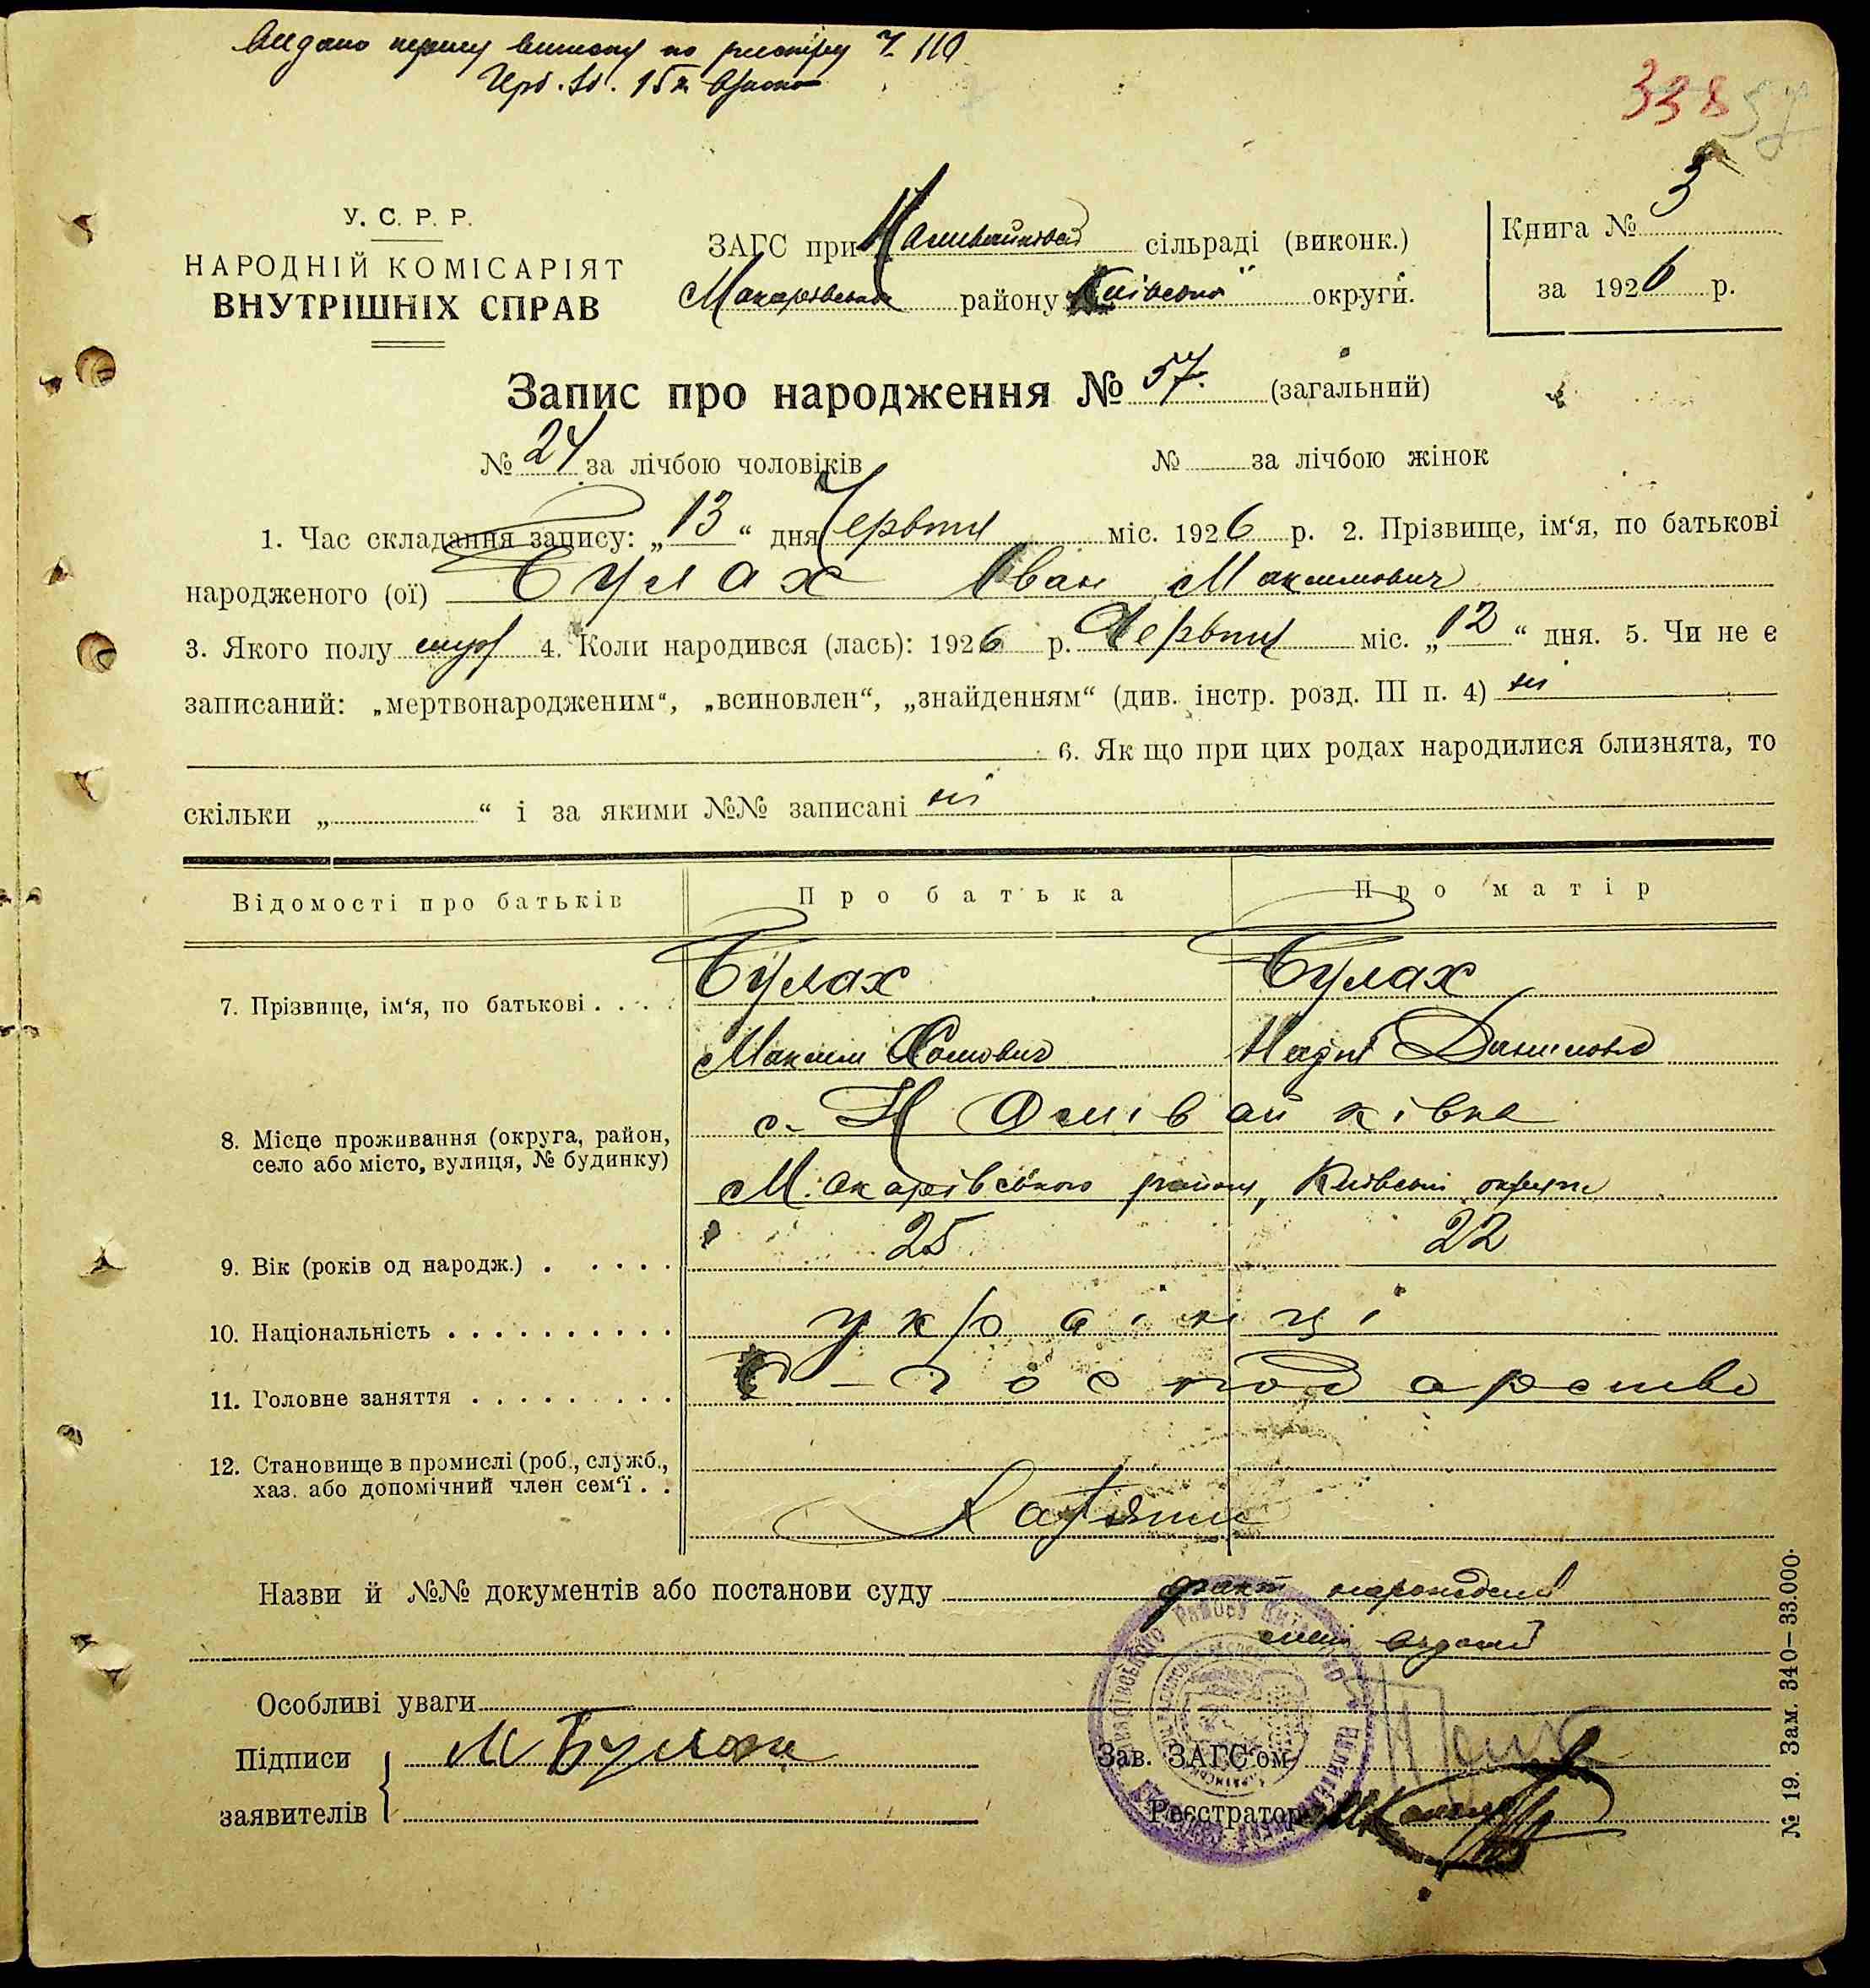 Видано першу виписку по реєстру Ч 110
338 57
У. С. Р. Р.
НАРОДНІЙ КОМІСАРІЯТ
ВНУТРІШНІХ СПРАВ
ЗАГС при Наливайківській сільраді (виконк.)
Макарівського району Київської округи.
Книга № 3
за 1926 р.
Запис про народження № 57. (загальний)
№ 24 за лічбою чоловіків № за лічбою жінок
1. Час складання запису: „13“ дня Червня міс. 1926 р. 2. Прізвище, ім'я, по батькові
народженого (ої) Булах Іван Максимович
3. Якого полу муж 4. Коли народився (лась): 1926 р. Червня міс. „12“ дня. 5. Чи не є
записаний: „мертвонародженим“, „всиновлен“, „знайденням“ (див. інстр. розд. III п. 4) ні
6. Як що при цих родах народилися близнята, то
скільки „ “ і за якими №№ записані ні
Відомості про батьків Про батька Про матір
Булах Булах
7. Прізвище, ім'я, по батькові . . . .
Максим Хомович Надія Данилова
с. Наливайківка
8. Місце проживання (округа, район,
село або місто, вулиця, № будинку)
Макарівського району, Київської округи
9. Вік (років од народж.) . . . . . 25 22
10. Національність . . . . . . . . . . українці
11. Головне заняття . . . . . . . . С-господарство
12. Становище в промислі (роб., служб.,
хаз. або допомічний член сем'ї . .
Хазяїни
Назви й №№ документів або постанови суду факт народження
Особливі уваги
Підписи М Булах Зав. ЗАГС'ом
заявителів Реєстратор
№ 19. Зам. 340—33.000.